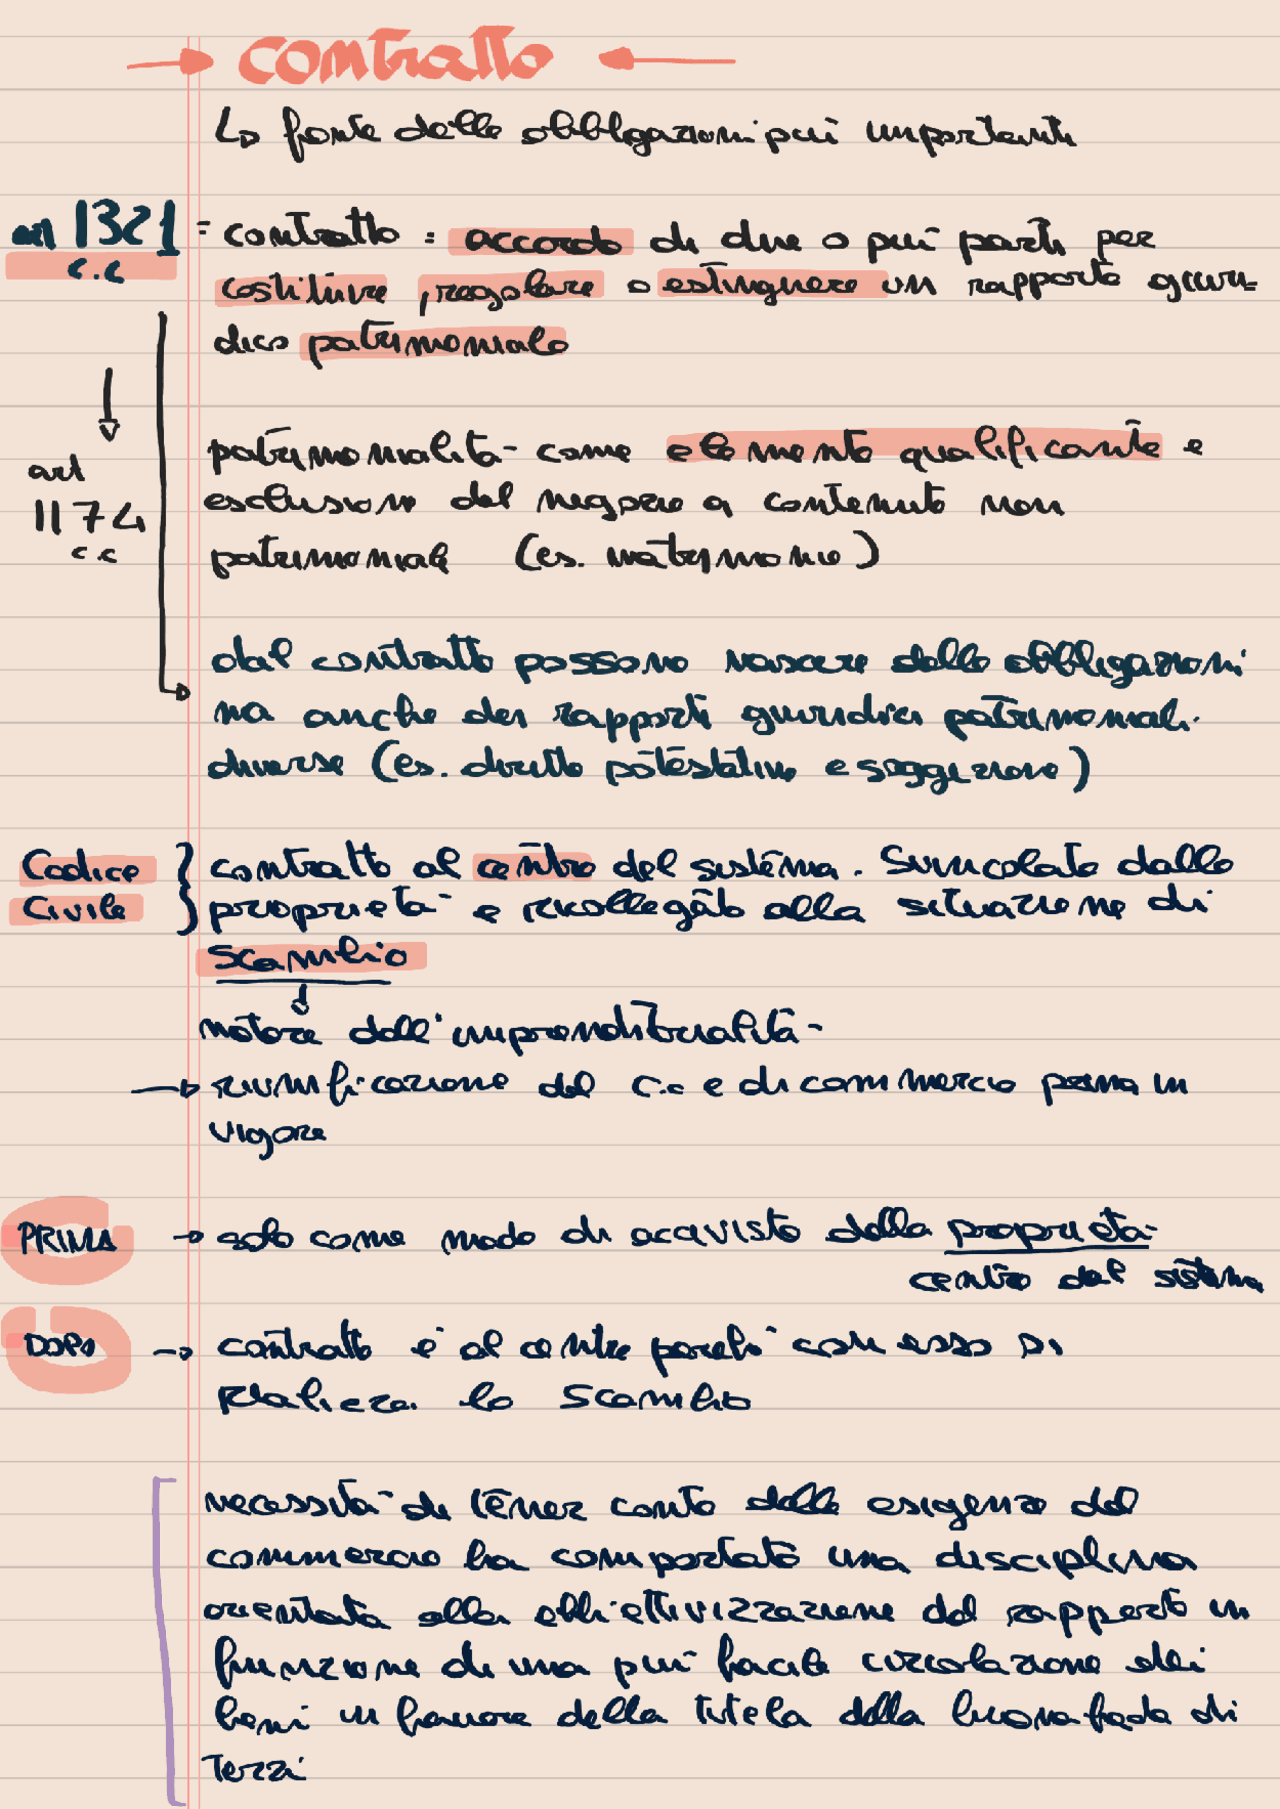 → contratto ←
↳ fonte delle obbligazioni più importante
art 1321 c.c = contratto : accordo di due o più parti per
costituire, regolare o estinguere un rapporto giuri-
dico patrimoniale
↓
art
1174
c.c
patrimonialità come elemento qualificante e
esclusione del negozio a contenuto non
patrimoniale (es. matrimonio)
dal contratto possono nascere delle obbligazioni
ma anche dei rapporti giuridici patrimoniali
diverse (es. diritto potestativo e soggezione)
Codice } contratto al centro del sistema. Svincolato dalla
Civile } proprietà e ricollegato alla situazione di
scambio
↓
motore dell'imprenditorialità
→ riunificazione del c.c e di commercio prima in
vigore
PRIMA → solo come modo di acquisto della proprietà
centro del sistema
DOPO → contratto è al centro perché con esso si
realizza lo scambio
necessità di tener conto delle esigenze del
commercio ha comportato una disciplina
orientata alla obbiettivizzazione del rapporto in
funzione di una più facile circolazione dei
beni in favore della tutela della buonafede di
terzi